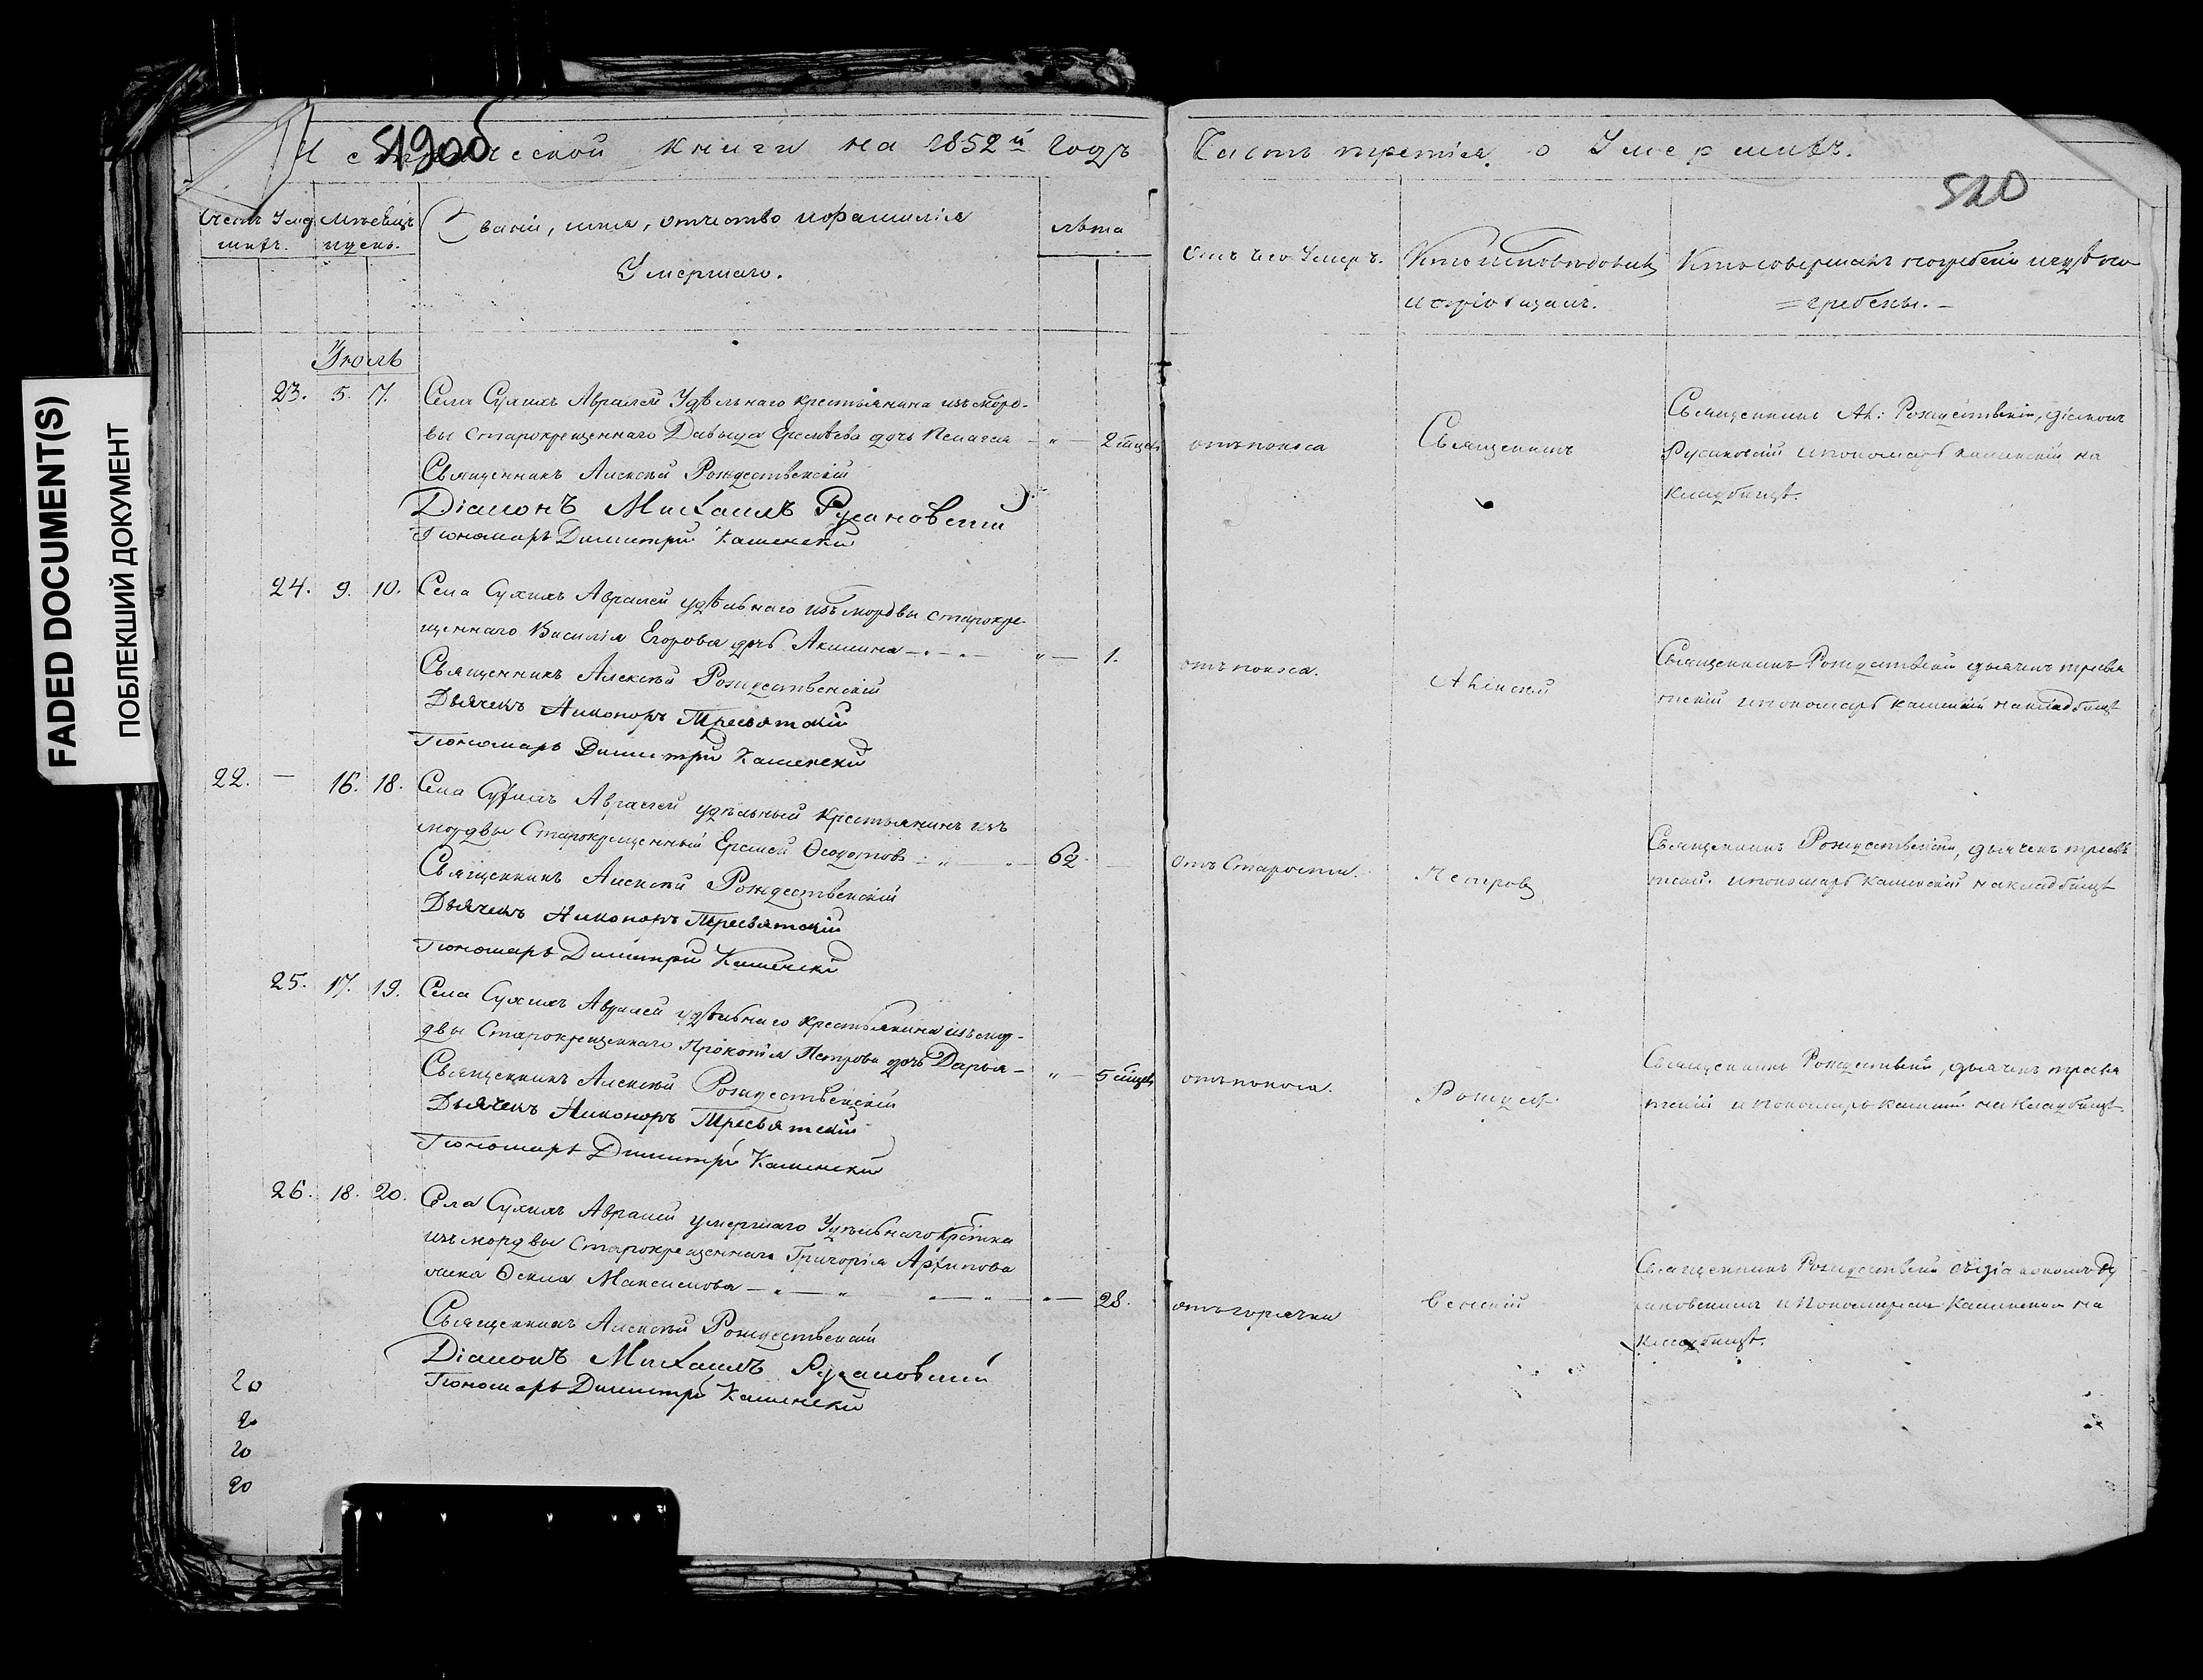 FADED DOCUMENT(S)
ПОБЛЕКШИЙ ДОКУМЕНТ
книги на 1852й годъ
Часть третія о Умершихъ.
520
Званіе, имя, отчество и фамилія
Умершаго.
лѣта
Отъ чего Умеръ.
Кто исповѣдовалъ
и пріобщалъ.
Кто совершалъ погребеніе и гдѣ по-
=гребены.-
Іюль
23. 5. 7. Села Сухихъ Авралей Удѣльнаго крестьянина изъ морд-
вы старокрещеннаго Давыда Еремѣева дочь Пелагея - " - 2 мцев
Священникъ Алексѣй Рождественскій
Діаконъ Михаилъ Русановскій
Пономарь Димитрій Каменскій
отъ поноса
Священникъ
Священникъ Ал: Рождественскій, діаконъ
Русановскій и пономарь Каменскій на
кладбищѣ.
24. 9. 10. Села Сухихъ Авралей удѣльнаго изъ мордвы старокре-
щеннаго Василія Егорова дочь Акилина - " - 1.
Священникъ Алексѣй Рождественскій
Дьячекъ Никоноръ Тресвятскій
Пономарь Димитрій Каменскій
отъ поноса.
Алексѣй
Священникъ Рождественскій дьячекъ тресвя
тскій и пономарь Каменскій на кладбищѣ
22. - 16. 18. Села Сухихъ Авралей удѣльный крестьянинъ изъ
мордвы Старокрещенный Еремей Ѳеодотовъ - " - 62
Священникъ Алексѣй Рождественскій
Дьячекъ Никоноръ Тресвятскій
Пономарь Димитрій Каменскій
Отъ Старости.
Петровъ
Священникъ Рождественскій, дьячекъ тресвя
тскій и пономарь Каменскій на кладбищѣ
25. 17. 19. Села Сухихъ Авралей удѣльнаго крестьянина изъ мор-
двы Старокрещеннаго Прокопія Петрова дочь Дарья - " - 5 мцев
Священникъ Алексѣй Рождественскій
Дьячекъ Никоноръ Тресвятскій
Пономарь Димитрій Каменскій
отъ поноса.
Рождест-
Священникъ Рождественскій, дьячекъ тресвя
тскій и пономарь Каменскій на кладбищѣ
26. 18. 20. Села Сухихъ Авралей умершаго Удѣльнаго
изъ мордвы Старокрещеннаго Григорія Архипова
жена Максимова - " - 28.
Священникъ Алексѣй Рождественскій
Діаконъ Михаилъ Русановскій
Пономарь Димитрій Каменскій
отъ горячки
венскій
Священникъ Рождественскій съ діакономъ Ру
сановскимъ и Пономаремъ Каменскимъ на
кладбищѣ.
20
20
20
20